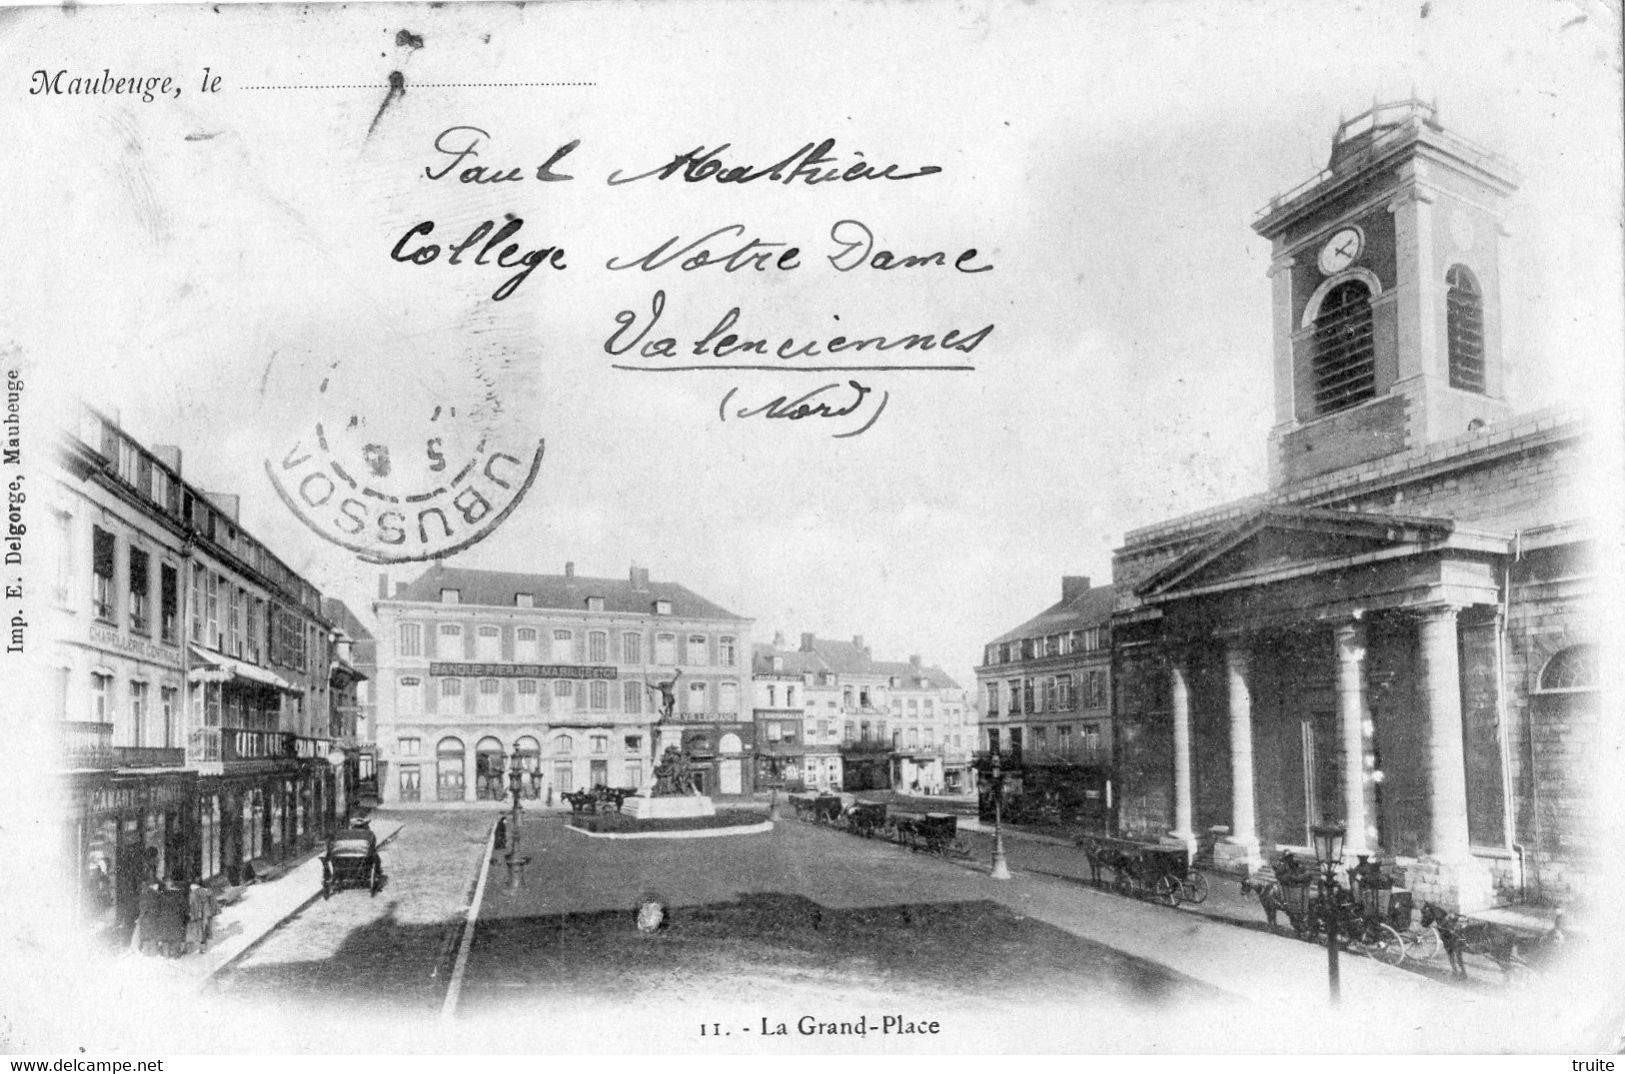 Maubeuge, le
Paul Mathieu
College Notre Dame
Valenciennes
(Nord)
UBUSSON
5 6
Imp. E. Delgorge, Maubeuge
CHAPELLERIE CENTRALE
BANQUE PIERARD, MABILLE & CIE
CAFÉ
11. - La Grand-Place
Maubeuge
truite